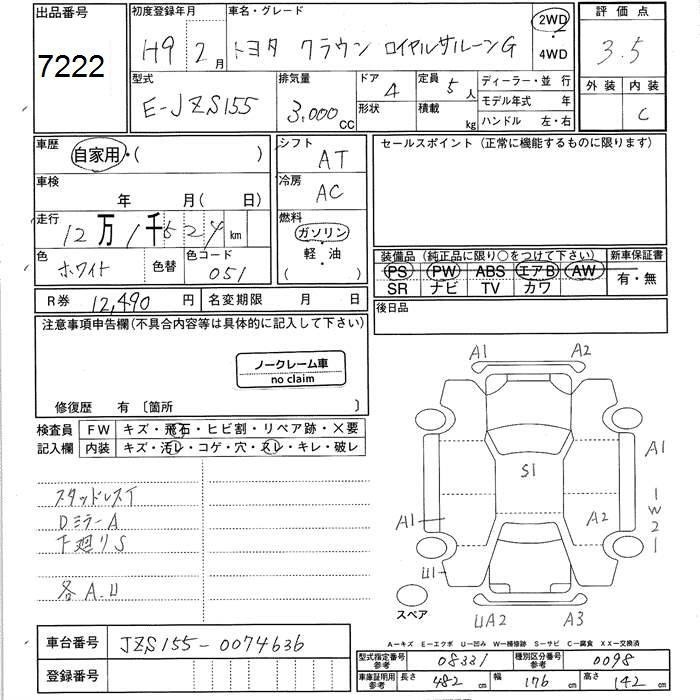 出品番号
7222
初度登録年月
H9 2月
車名・グレード
トヨタ クラウン ロイヤルサルーンG
2WD
4WD
評価点
3.5
外装 内装
C
型式
E-JZS155
排気量
3,000cc
ドア
4
形状
定員
5人
積載
kg
ディーラー・並行
モデル年式 年
ハンドル 左・右
車歴
自家用・( )
車検
年 月(日)
走行
12万1千524km
色
ホワイト
色替
色コード
051
シフト
AT
冷房
AC
燃料
ガソリン
軽・油
( )
セールスポイント(正常に機能するものに限ります)
装備品(純正品に限り○をつけて下さい)
PS PW ABS エアB AW
SR ナビ TV カワ
新車保証書
有・無
後日品
R券 12,490円
名変期限 月 日
注意事項申告欄(不具合内容等は具体的に記入して下さい)
ノークレーム車
no claim
修復歴 有〔箇所 〕
検査員
記入欄
FW キズ・飛石・ヒビ割・リペア跡・×要
内装 キズ・汚レ・コゲ・穴・スレ・キレ・破レ
スタッドレスT
DミラーA
下廻りS
各A.U
A1
A2
A1
S1
A1
A2
W2
U1
スペア
UA2
A3
A-キズ E-エクボ U-凹み W-補修跡 S-サビ C-腐食 XX-交換済
車台番号 JZS155-0074636
登録番号
型式指定番号
参考
08331
種別区分番号
参考
0098
車庫証明用
参考
長さ 482cm
幅 176cm
高さ 142cm